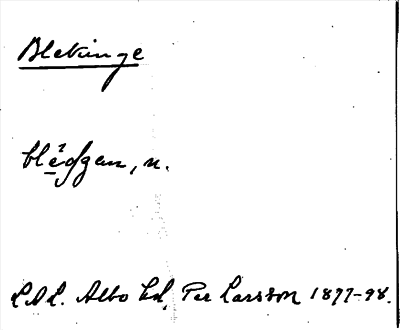 Blekinge
blędgan, n.
L.A.L. Albo hd, Per Larsson 1877-98.